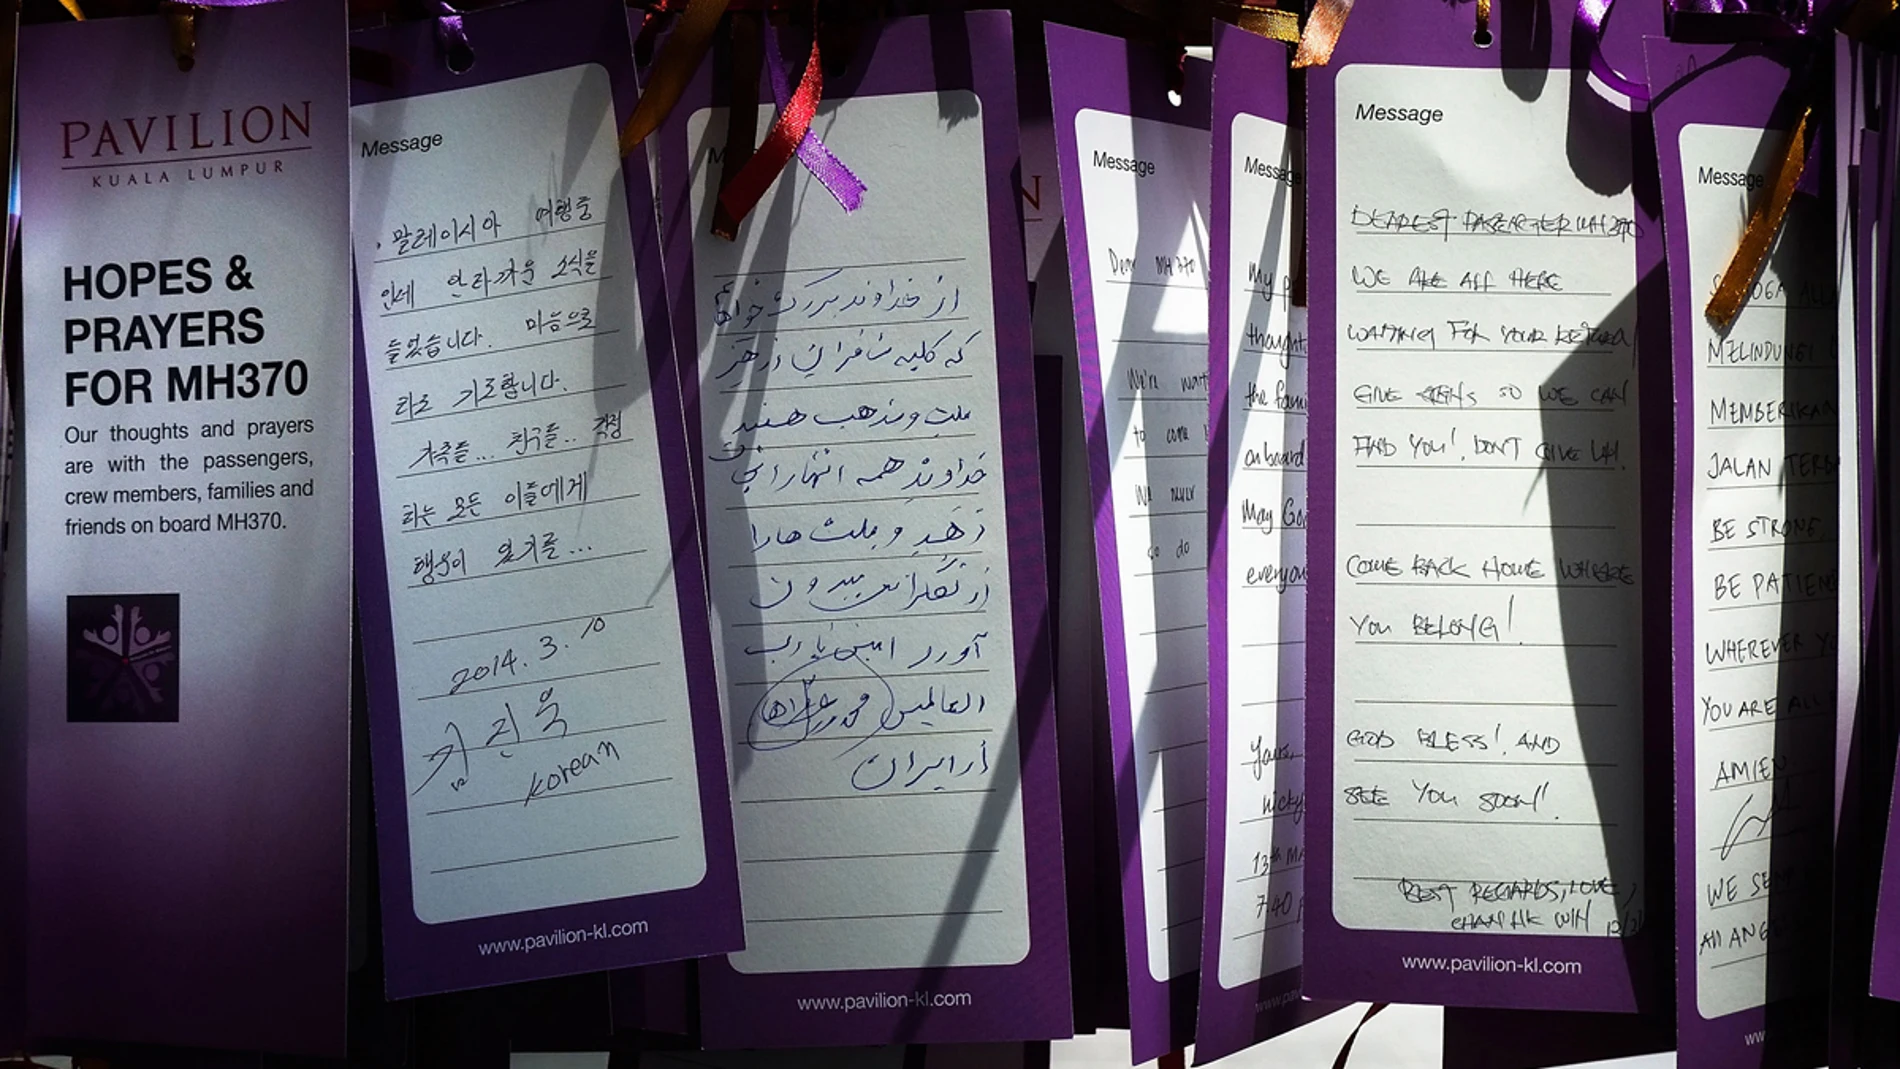 PAVILION
KUALA LUMPUR
HOPES &
PRAYERS
FOR MH370
Our thoughts and prayers
are with the passengers,
crew members, families and
friends on board MH370.
Message
말레이시아 여행중
인데 안타까운 소식을
들었습니다. 마음으로
기도합니다.
가족들... 친구들.. 걱정
하는 모든 이들에게
행운이 있기를...
2014. 3. 10
김진욱
Korean
www.pavilion-kl.com
از خداوند بزرگ
که کلیه مسافران از هر
ملت و مذهب هستند
خداوند همه انها را
دهد و ملت ها را
از نگرانی بیرون
آورد امین یا رب
العالمین
از ایران
www.pavilion-kl.com
Message
Dear MH370
We're
to come
We never
so do
Message
My
the
on board
May
Yours,
nicky
13th
7:40
Message
DEAREST PASSENGER MH370
WE ARE ALL HERE
WAITING FOR YOUR RETURN
GIVE SIGNS SO WE CAN
FIND YOU! DON'T GIVE UP.
COME BACK HOME WHERE
YOU BELONG!
GOD BLESS! AND
SEE YOU SOON!
BEST REGARDS, LOVE,
www.pavilion-kl.com
Message
MELINDUNGI
MEMBERIKAN
JALAN
BE STRONG,
BE PATIENT
WHEREVER
YOU ARE ALL
AMIEN
WE
All